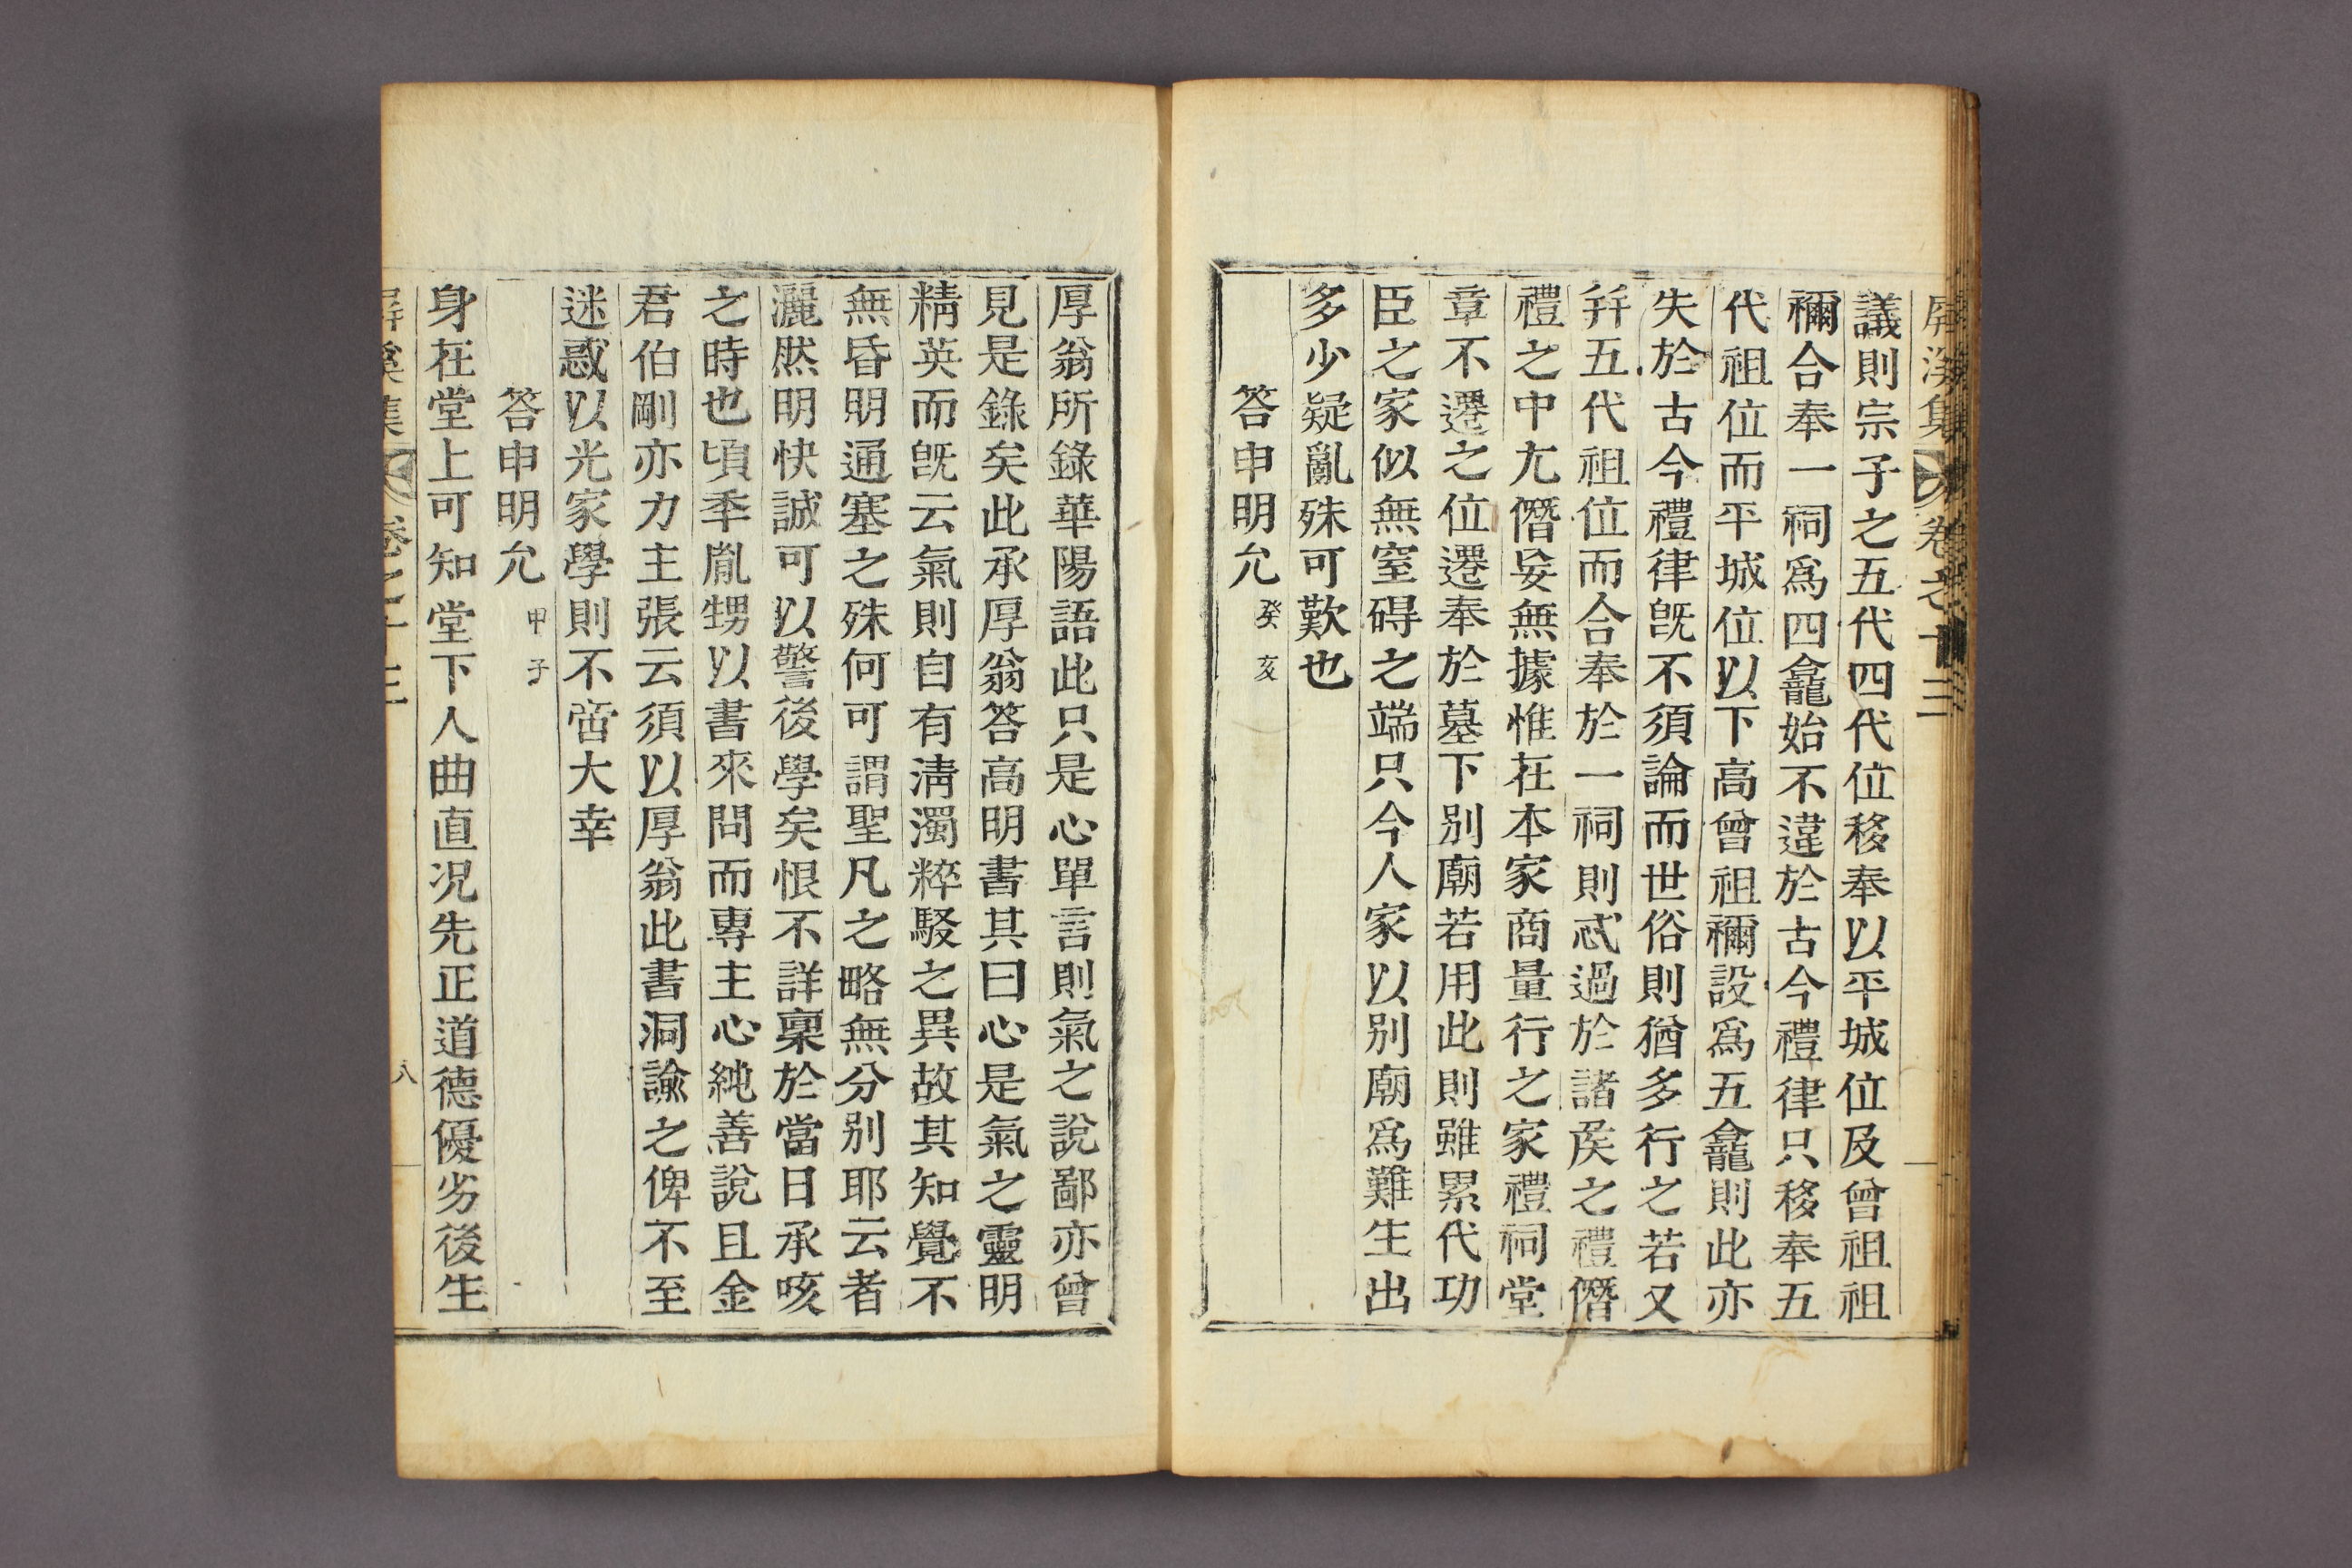 屛溪集 卷之十三
議則宗子之五代四代位移奉以平城位及曾祖祖
禰合奉一祠爲四龕始不違於古今禮律只移奉五
代祖位而平城位以下高曾祖禰設爲五龕則此亦
失於古今禮律旣不須論而世俗則猶多行之若又
并五代祖位而合奉於一祠則忒過於諸侯之禮僭
禮之中尢僭妄無據惟在本家商量行之家禮祠堂
章不遷之位遷奉於墓下別廟若用此則雖累代功
臣之家似無窒碍之端只今人家以別廟爲難生出
多少疑亂殊可歎也
答申明允 癸亥
厚翁所錄華陽語此只是心單言則氣之說鄙亦曾
見是錄矣此承厚翁答高明書其曰心是氣之靈明
精英而旣云氣則自有淸濁粹駁之異故其知覺不
無昏明通塞之殊何可謂聖凡之略無分別耶云者
灑然明快誠可以警後學矣恨不詳稟於當日承咳
之時也頃季胤甥以書來問而專主心純善說且金
君伯剛亦力主張云須以厚翁此書洞諭之俾不至
迷惑以光家學則不啻大幸
答申明允 甲子
身在堂上可知堂下人曲直况先正道德優劣後生
八